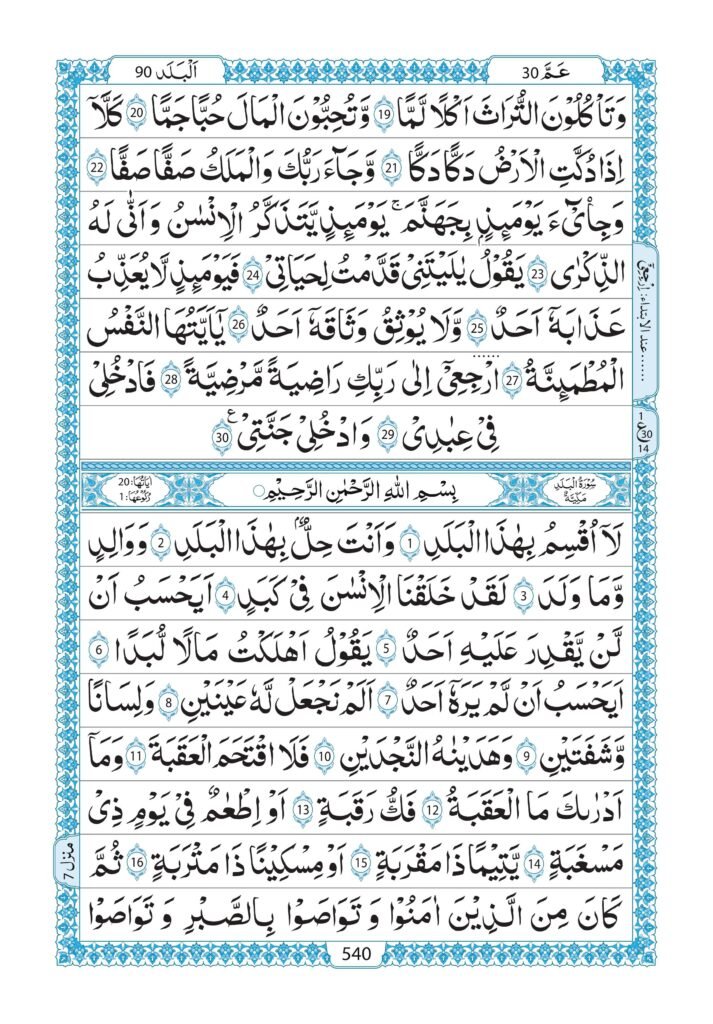 عَمَّ 30
اَلْبَلَد 90
وَتَاْكُلُوْنَ التُّرَاثَ اَكْلًا لَّمًّا 19 وَّتُحِبُّوْنَ الْمَالَ حُبًّا جَمًّا 20 كَلَّاۤ
اِذَا دُكَّتِ الْاَرْضُ دَكًّا دَكًّا 21 وَّجَآءَ رَبُّكَ وَالْمَلَكُ صَفًّا صَفًّا 22
وَجِایْٓءَ يَوْمَىِٕذٍۭ بِجَهَنَّمَ ۚ يَوْمَىِٕذٍ يَّتَذَكَّرُ الْاِنْسٰنُ وَاَنّٰى لَهُ
الذِّكْرٰى 23 يَقُوْلُ يٰلَيْتَنِیْ قَدَّمْتُ لِحَيَاتِیْ 24 فَيَوْمَىِٕذٍ لَّا يُعَذِّبُ
عَذَابَهٗۤ اَحَدٌ 25 وَّلَا يُوْثِقُ وَثَاقَهٗۤ اَحَدٌ 26 يٰۤاَيَّتُهَا النَّفْسُ
الْمُطْمَىِٕنَّةُ 27 ارْجِعِیْۤ اِلٰى رَبِّكِ رَاضِيَةً مَّرْضِيَّةً 28 فَادْخُلِیْ
فِیْ عِبٰدِیْ 29 وَادْخُلِیْ جَنَّتِیْ ع 30
......عند الابتداء: اِرْجِعِیْ
1
ع 30
14
سُوْرَةُ الْبَلَدِ مَكِّيَّةٌ
بِسْمِ اللّٰهِ الرَّحْمٰنِ الرَّحِيْمِ
اٰيَاتُهَا: 20
رُكُوْعُهَا: 1
لَاۤ اُقْسِمُ بِهٰذَا الْبَلَدِ 1 وَاَنْتَ حِلٌّۢ بِهٰذَا الْبَلَدِ 2 وَوَالِدٍ
وَّمَا وَلَدَ 3 لَقَدْ خَلَقْنَا الْاِنْسٰنَ فِیْ كَبَدٍ 4 اَيَحْسَبُ اَنْ
لَّنْ يَّقْدِرَ عَلَيْهِ اَحَدٌ 5 يَقُوْلُ اَهْلَكْتُ مَالًا لُّبَدًا 6
اَيَحْسَبُ اَنْ لَّمْ يَرَهٗۤ اَحَدٌ 7 اَلَمْ نَجْعَلْ لَّهٗ عَيْنَيْنِ 8 وَلِسَانًا
وَّشَفَتَيْنِ 9 وَهَدَيْنٰهُ النَّجْدَيْنِ 10 فَلَا اقْتَحَمَ الْعَقَبَةَ 11 وَمَاۤ
اَدْرٰىكَ مَا الْعَقَبَةُ 12 فَكُّ رَقَبَةٍ 13 اَوْ اِطْعٰمٌ فِیْ يَوْمٍ ذِیْ
مَسْغَبَةٍ 14 يَّتِيْمًا ذَا مَقْرَبَةٍ 15 اَوْ مِسْكِيْنًا ذَا مَتْرَبَةٍ 16 ثُمَّ
كَانَ مِنَ الَّذِيْنَ اٰمَنُوْا وَ تَوَاصَوْا بِالصَّبْرِ وَ تَوَاصَوْا
منزل 7
540